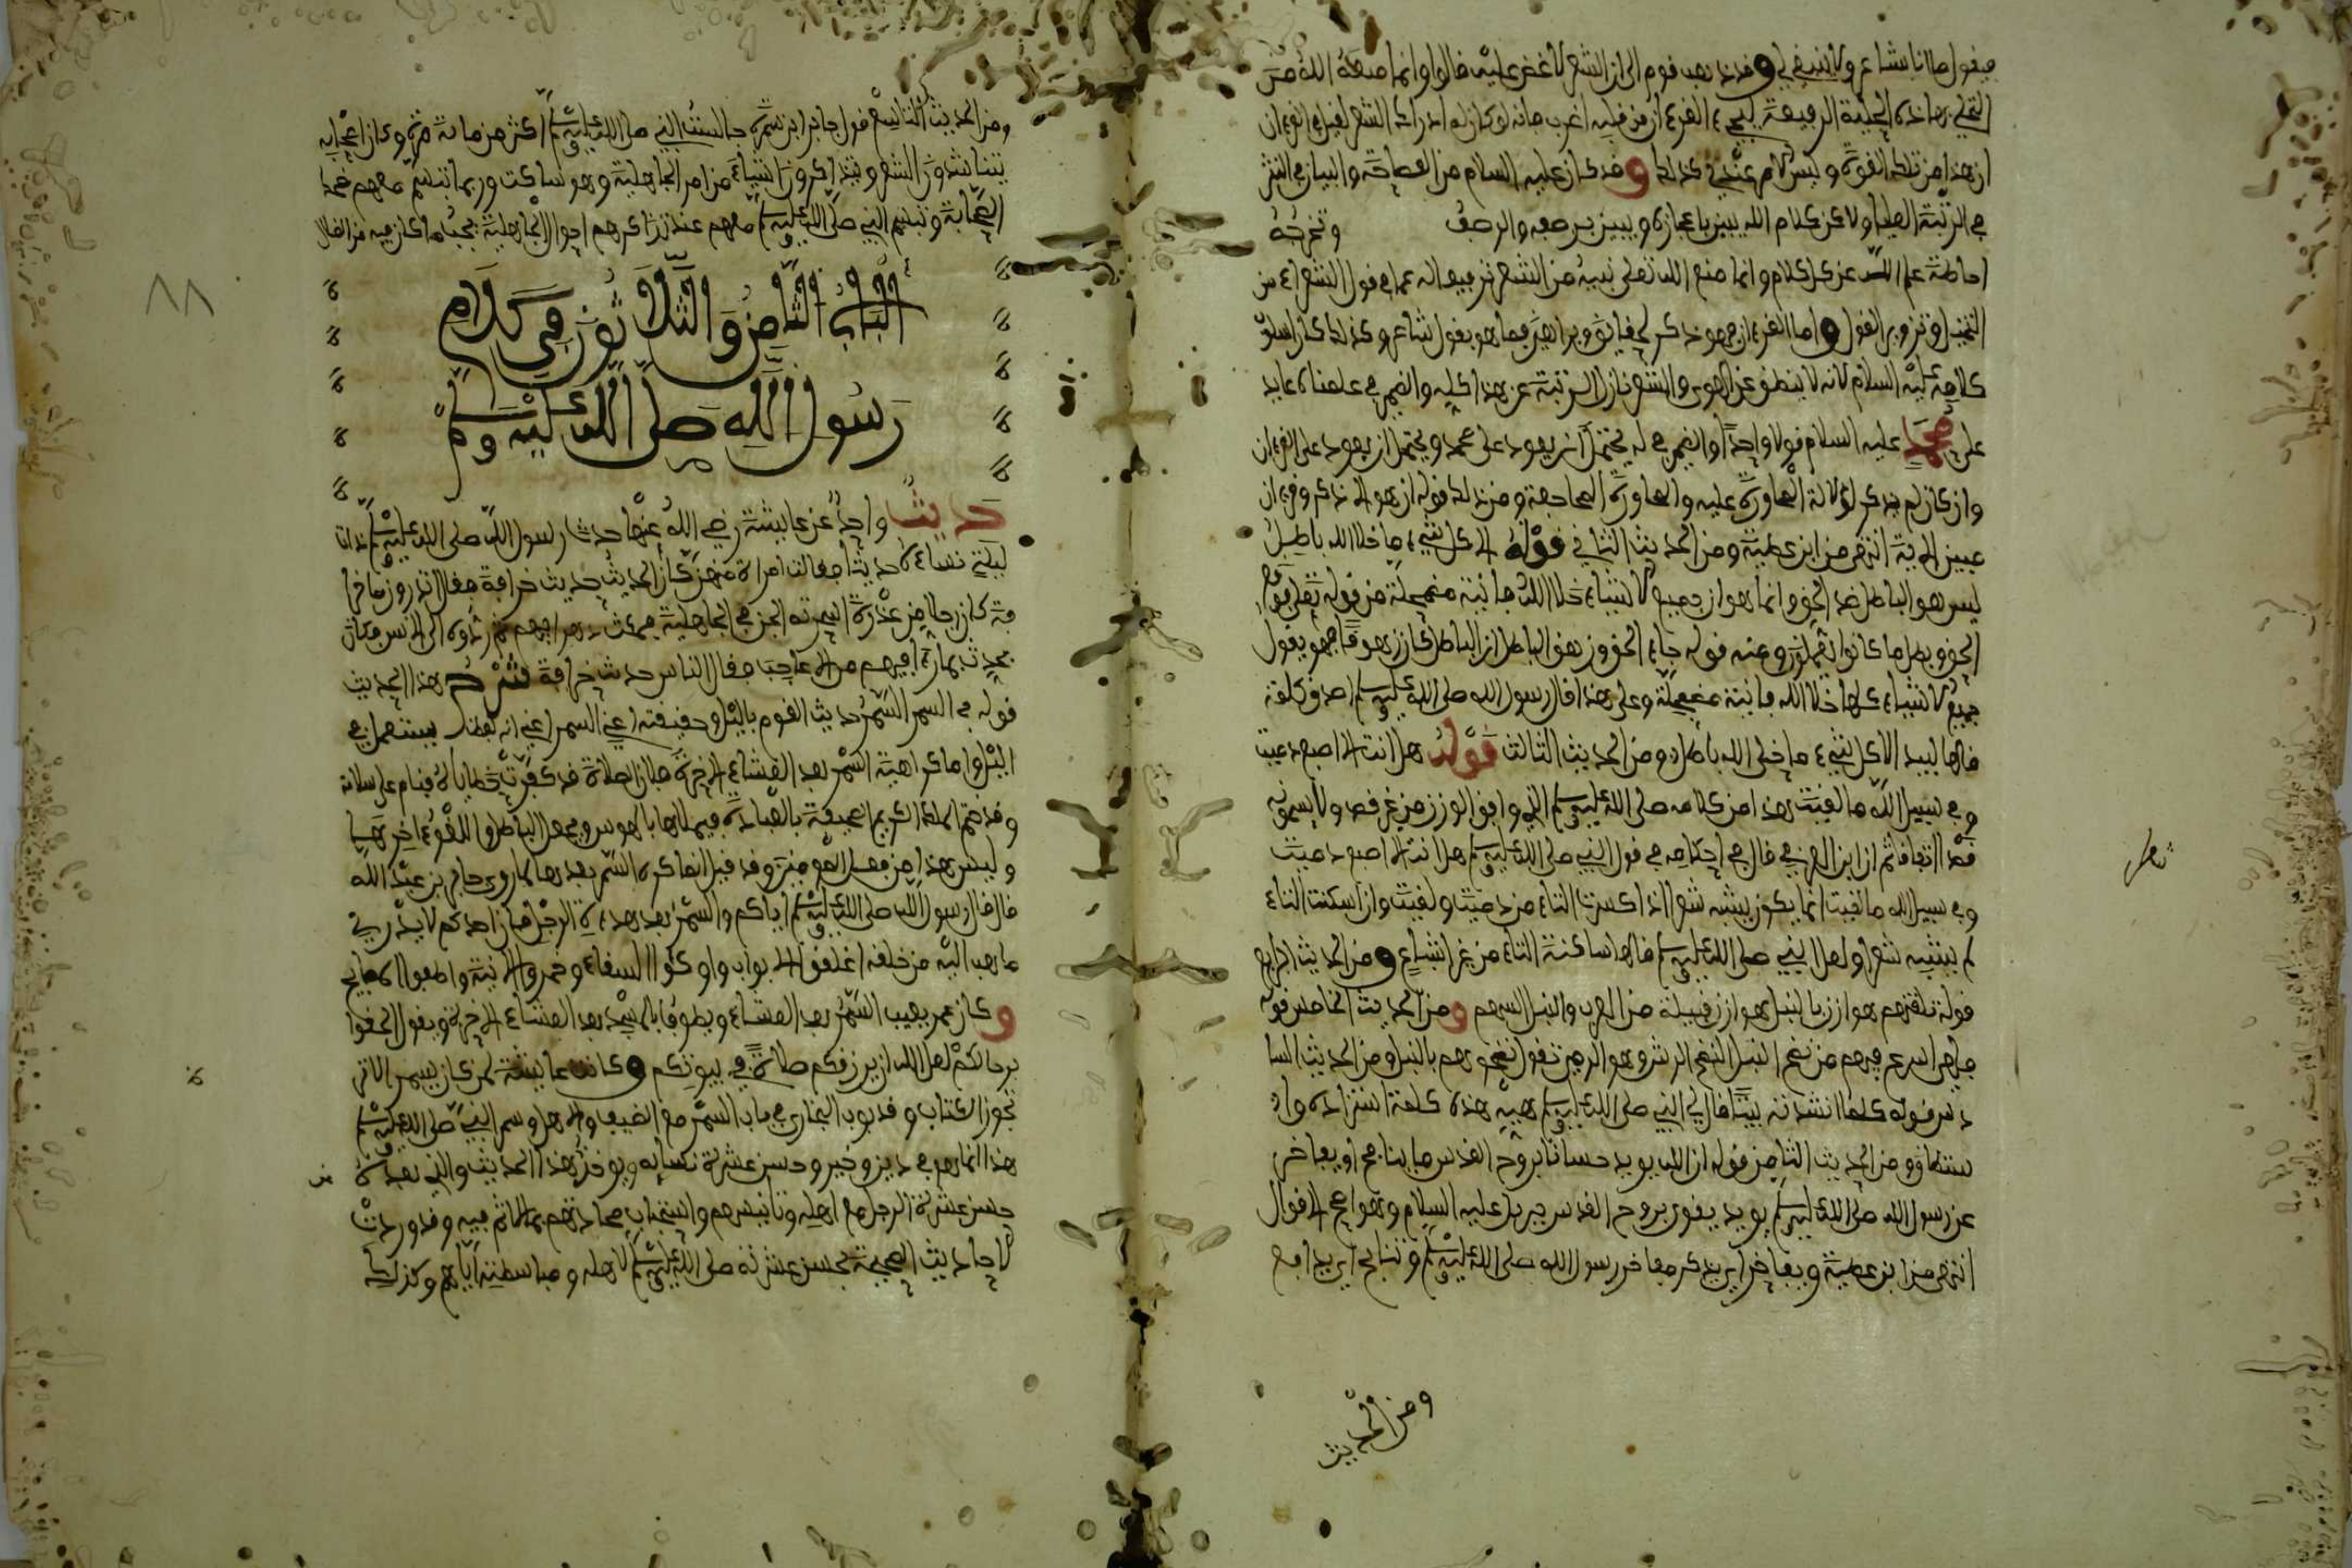 فيقول ما انا بشاعر ولا ينبغي لي وقد ذهب قوم الى ان الشعر لا غض عليه قالوا وانما منعه الله من
التحلي بهاذه الحلية الرفيعة ليجيء القرءان من قبله اغرب فانه لو كان له ادراك الشعر لقيل في القرءان
ان هذا من تلك القوة وليس الامر عندي كذلك وقد كان عليه السلام من الفصاحة والبيان في النثر
في الرتبة العليا ولاكن كلام الله يبين باعجازه ويبين برصفه والرصف وتخرجه
احاطة علم الله عن كل كلام وانما منع الله تعلى نبيه من الشعر ترفيعا له عما في قول الشعراء من
التخييل وتزوير القول واما القرءان فهو ذكر لحقائق وبراهين فما هو بقول شاعر وكذلك كان اسلوب
كلامه عليه السلام لانه لا ينطق عن الهوى والشعر نازل الرتبة عن هذا كله والضمير في علمناه عايد
على محمد عليه السلام قولا واحدا والضمير في له يحتمل ان يعود على محمد ويحتمل ان يعود على القرءان
وان كان لم يذكر لدلالة المحاورة عليه ومن ذلك قوله ان هو الا ذكر وقرءان
مبين الاية انتهى من ابن عطية ومن الحديث الثاني قوله الا كل شيء ما خلا الله باطل
ليس هو الباطل ضد الحق وانما هو ان جميع الاشياء خلا الله فانية مضمحلة من قوله تعلى فوقع
الحق وبطل ما كانوا يعملون وعنه قوله جاء الحق وزهق الباطل ان الباطل كان زهوقا فهو يقول
جميع الاشياء كلها خلا الله فانية مضمحلة وعلى هذا قال رسول الله صلى الله عليه وسلم اصدق كلمة
قالها لبيد الا كل شيء ما خلى الله باطل ومن الحديث الثالث قوله هل انت الا اصبع دميت
وفي سبيل الله ما لقيت هذا من كلامه صلى الله عليه وسلم الذي وافق الوزن من غير قصد ولا يسمونه
ثم ان ابن العربي قال في احكامه في قول النبي صلى الله عليه وسلم هل انت الا اصبع دميت
وفي سبيل الله ما لقيت انما يكون يشبه شعرا اذا كسرت التاء من دميت ولقيت وان اسكنت التاء
لم يشبه شعرا ولعل النبي صلى الله عليه وسلم قالها ساكنة التاء من غير اشباع ومن الحديث الرابع
قوله تلقتهم هوازن بالنبل هوازن قبيلة من العرب والنبل السهم ومن الحديث الخامس قوله
فيهم من نضح النبل النضح الرش وهو الرمي تقول نضحوهم بالنبل ومن الحديث السا
دس قوله كلما انشدته بيتا قال لي النبي صلى الله عليه وسلم هيه هذه كلمة استزادة
ومن الحديث الثامن قوله ان الله يويد حسانا بروح القدس ما ينافح او يفاخر
عن رسول الله صلى الله عليه وسلم يويد يقوي بروح القدس جبريل عليه السلام وهو اصح الاقوال
انتهى من ابن عطية ويفاخر اي يذكر مفاخر رسول الله صلى الله عليه وسلم وينافح اي يدافع
ومن الحديث
ومن الحديث التاسع قول جابر ابن سمرة جالست النبي صلى الله عليه وسلم اكثر من مائة مرة وكان اصحابه
يتناشدون الشعر ويتذاكرون اشياء من امر الجاهلية وهو ساكت وربما تبسم معهم
الصحابة وتبسم النبي صلى الله عليه وسلم معهم عند تذاكرهم احوال الجاهلية
الباب الثامن والثلاثون في كلام
رسول الله صلى الله عليه وسلم
حديث واحد عن عايشة رضي الله عنها حدث رسول الله صلى الله عليه وسلم ذات
ليلة نساءه حديثا فقالت امراة منهن كان الحديث حديث خرافة فقال اتدرون ما خرا
فة كان رجلا من عذرة اسرته الجن في الجاهلية فمكث دهرا فيهم ثم ردوه الى الانس فكان
يحدث بما راى فيهم من الاعاجب فقال الناس حديث خرافة شرح هذا الحديث
قوله في السمر السمر حديث القوم بالليل وحقيقته اعني السمر اعني انه يستعمل في
الليل واما كراهية السمر بعد العشاء الاخرة فلان الصلاة قد كفرت خطاياه فينام على سلامة
وقد ختم الملك الكريم صحيفته بالعبادة فيملاها بالهوس ويجعل الباطل واللغو ءاخرها
وليس هذا من فعل المومنين وقد قيل انما كره السمر بعدها لما روى جابر بن عبد الله
قال قال رسول الله صلى الله عليه وسلم اياكم والسمر بعد هداة الرجل فان احدكم لا يدري
ما يبث الله من خلقه اغلقوا الابواب واوكئوا السقاء وخمروا الانية واطفوا المصابيح
وكان عمر يعيب السمر بعد العشاء ويطوف بالمسجد بعد العشاء الاخرة ويقول الحقوا
برحالكم لعل الله ان يرزقكم صلاة في بيوتكم وكانت عايشة
وقد بوب البخاري في باب السمر مع الضيف والاهل وسمر النبي صلى الله عليه وسلم
هذا انما هو في دين وخير وحسن عشرة نسايه ويوخذ هذا الحديث والذي بعده
حسن عشرة الرجل مع اهله وتانيسهم واستحباب محادثتهم بما لا اثم فيه وقد وردت
الاحاديث الصحيحة بحسن عشرته صلى الله عليه وسلم لاهله ومباسطته اياهم وكذلك
٨٨